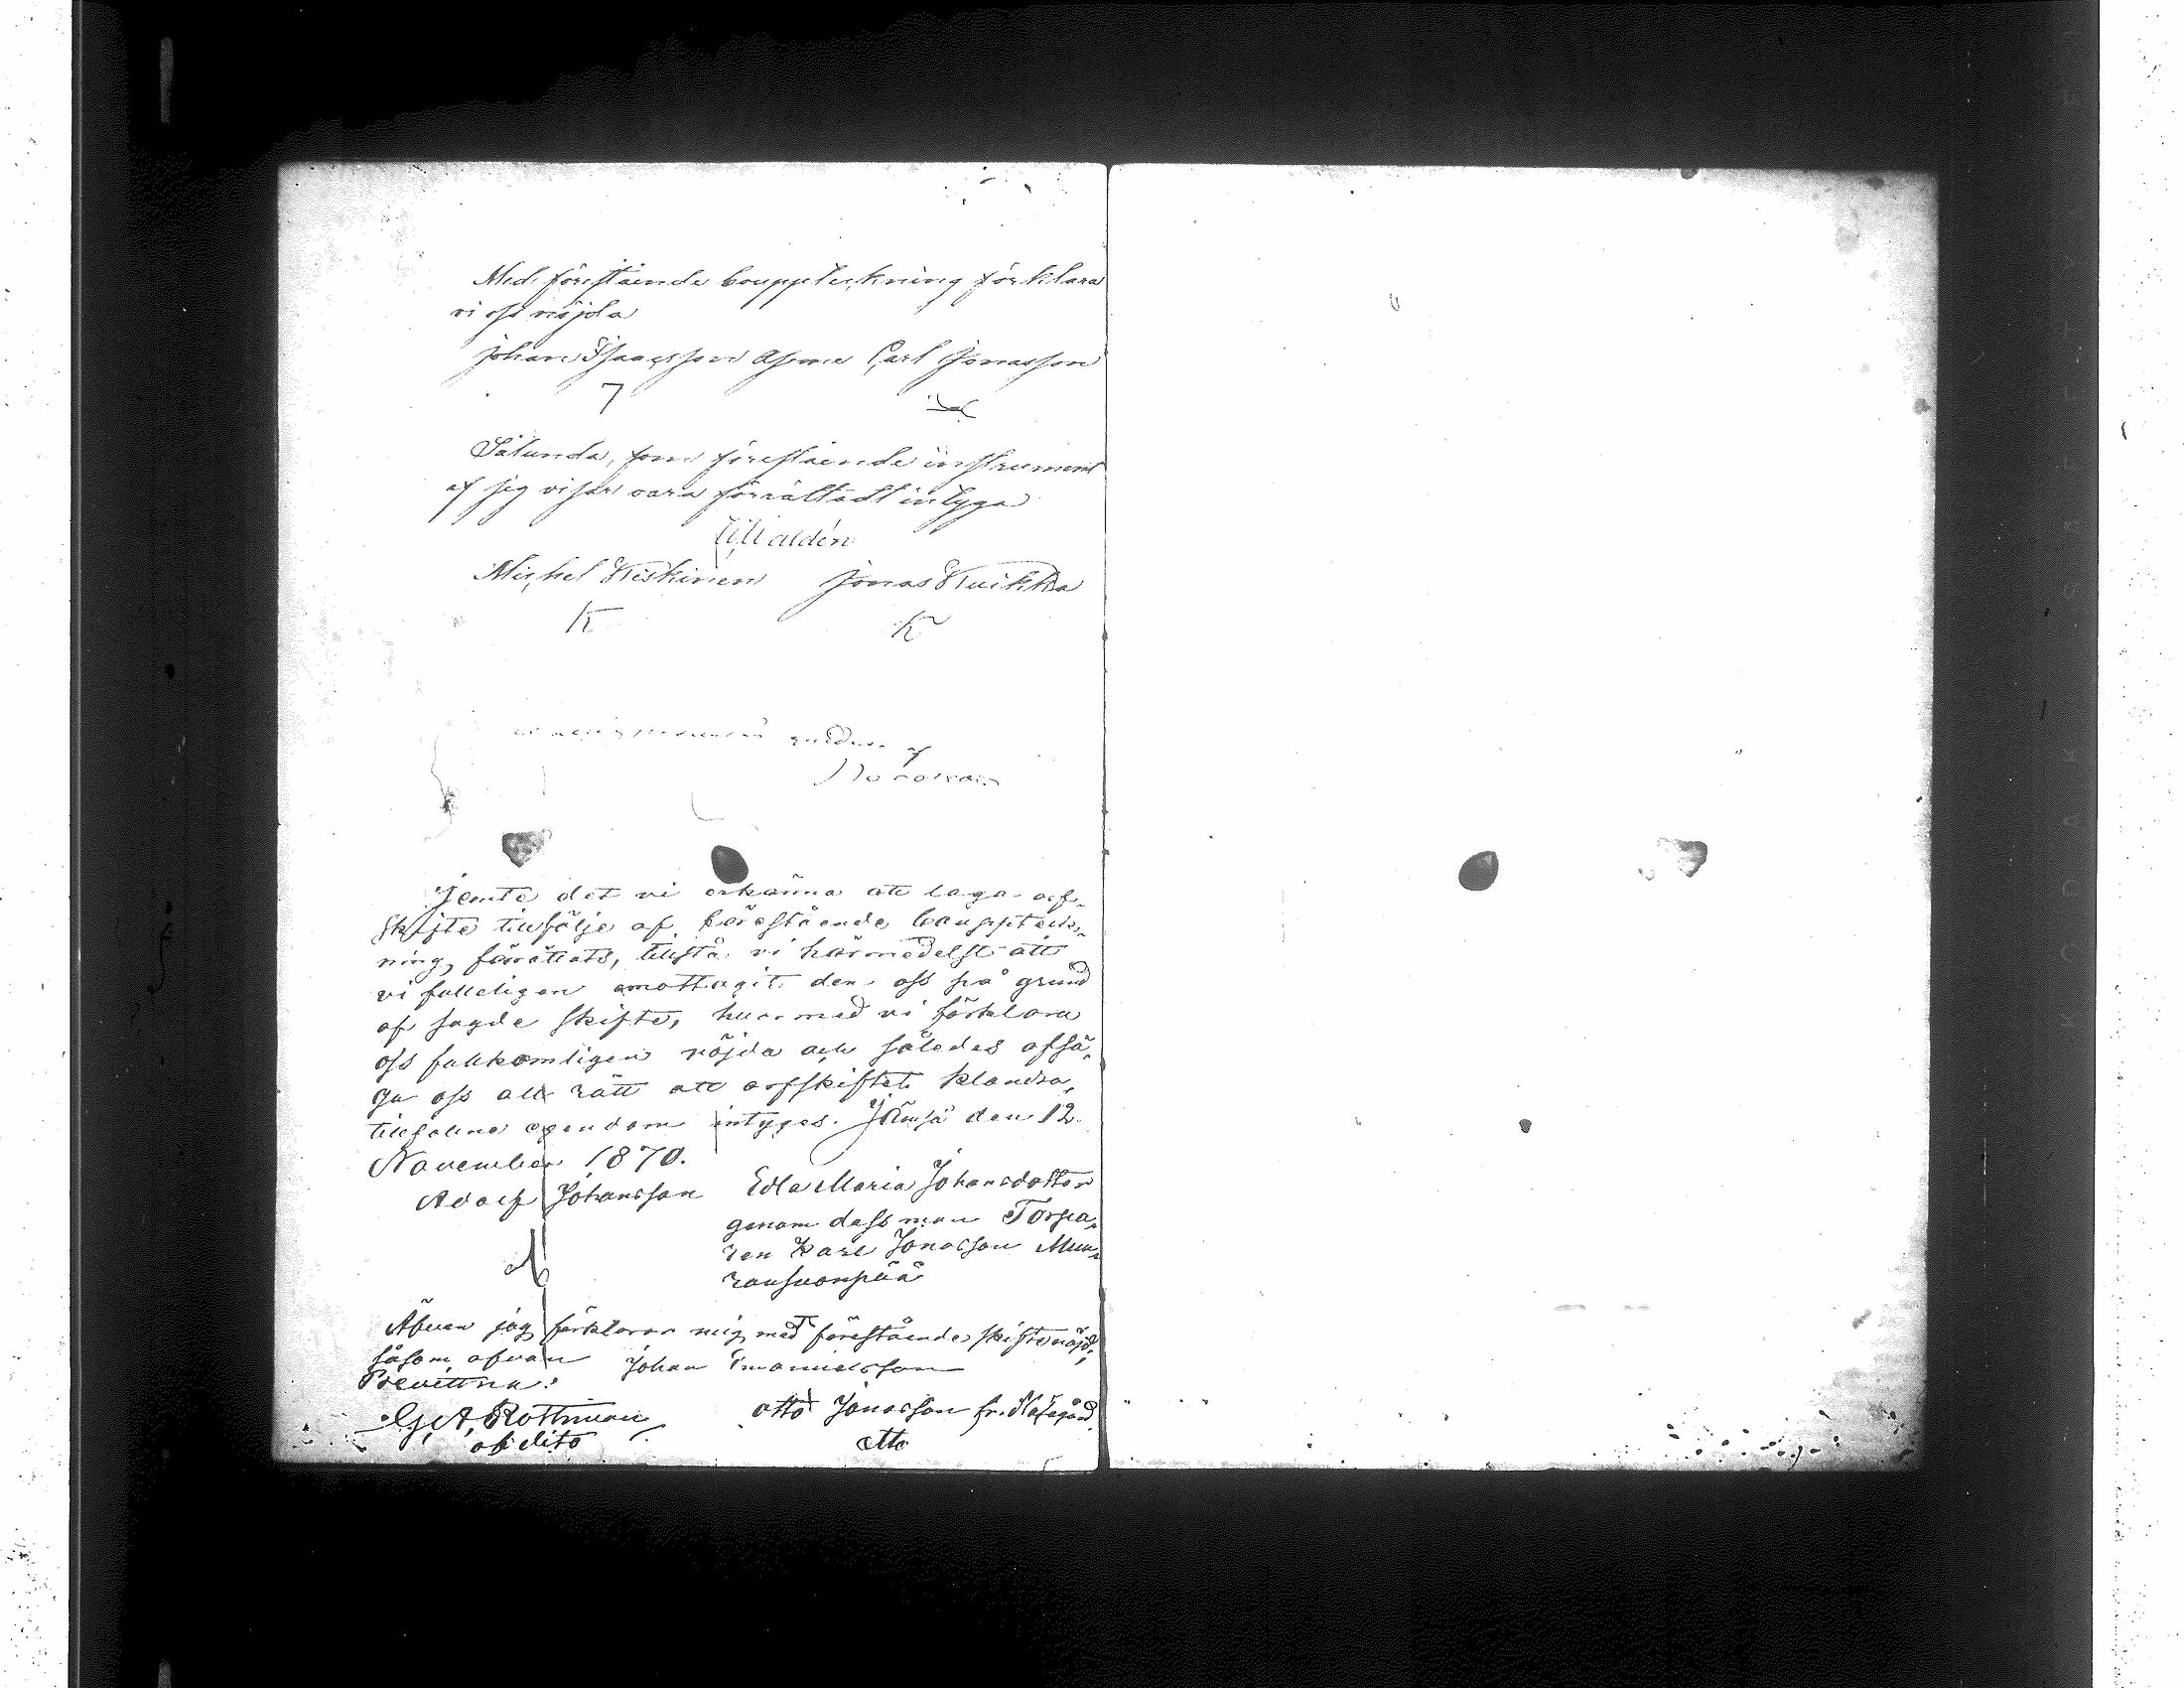 Med förestående bouppteckning förklara
vi oss nöjda
Johan Isaacsson Carl Jonasson
Sålunda, som förestående instrument
visar vara förrättadt intyga
Michel Niskinen Jonas Kuikka
K K
af
Jemte det vi erkänna att laga arf-
skifte tillfölje af förestående bouppteck-
ning förättats, tillstå vi härmedelst att
vi fulleligen emottagit den oss på grund
af sagde skifte, hvarmed vi förklara
oss fullkomligen nöjda och således afsä-
ga oss all rätt att arfskiftet klandra,
tillfallne egendom intyges. Jämsä den 12
November 1870.
Adolf Johansson Edla Maria Johansdotter
genom dess man Torpa-
ren Karl Jonasson Mur-
ransuonpää
Äfven jag förklarar mig med förestående skifte nöjd,
såsom ofvan Johan Emanuelsson
Bevittna:
G. A. Rottman Otto Jonasson fr.
af dito Otto